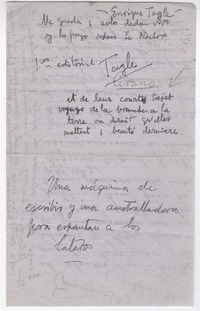 Enrique Tagle
Me queda 1 solo dedo
y lo puso sobre la
editorial Tagle
et de leur court trajet
voyage de la branche a la
terre on dirait qu'elles
mettent 1 beauté derniere
Una máquina de
escribir y una ametralladora
para espantar a los